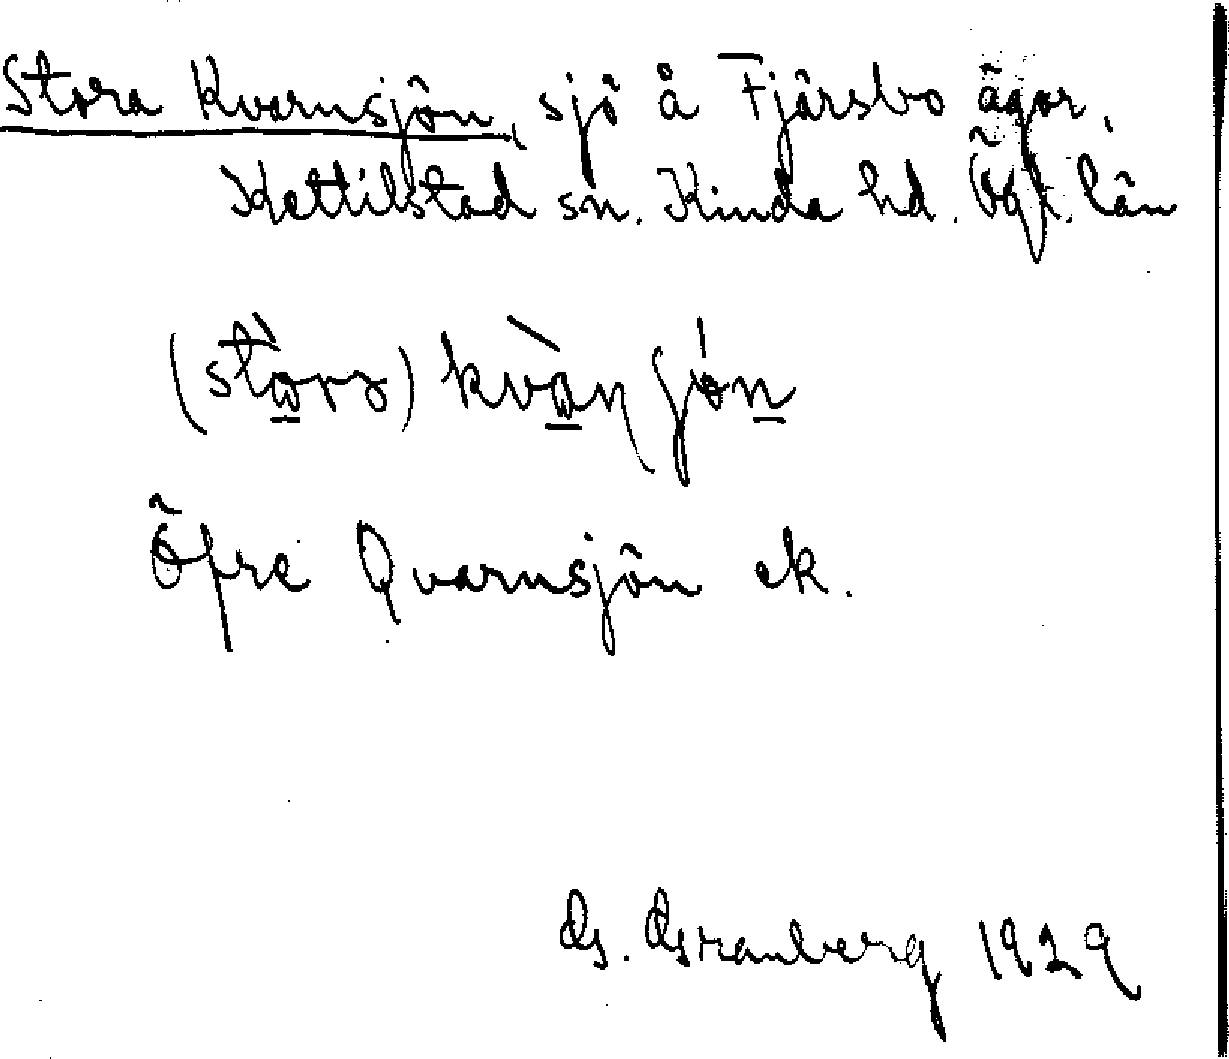 Stora Kvarnsjön, sjö å Fjärsbo ägor,
Kettilstad sn. Kinda hd. Ögt. län
(stὼrɜ) kvàɳ ʃön
Öfre Qvarnsjön ek.
G. Granberg 1929